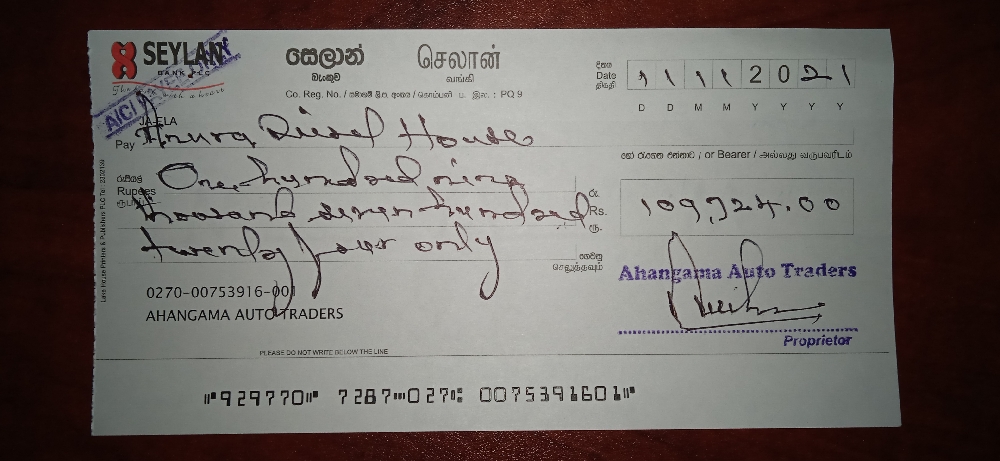 SEYLAN
BANK PLC
සෙලාන්
බැංකුව
செலான்
வங்கி
Co. Reg. No. / සමාගම් ලි.ප. අංකය / கொம்பனி ப. இல. : PQ 9
දිනය
Date
திகதி
11 11 2021
D D M M Y Y Y Y
JA-ELA
Pay Anura Diesel House
හෝ රැගෙන එන්නාට / or Bearer / அல்லது வருபவரிடம்
රුපියල්
Rupees
ரூபாய்
One hundred nine
thousand seven hundred
twenty four only
රු.
Rs.
ரூ.
109,724.00
ගෙවනු
செலுத்தவும்
Ahangama Auto Traders
Proprietor
0270-00753916-001
AHANGAMA AUTO TRADERS
PLEASE DO NOT WRITE BELOW THE LINE
⑈929770⑈ 7287⑉027⑆ 0075391601⑈
Lake House Printers & Publishers PLC Tel :